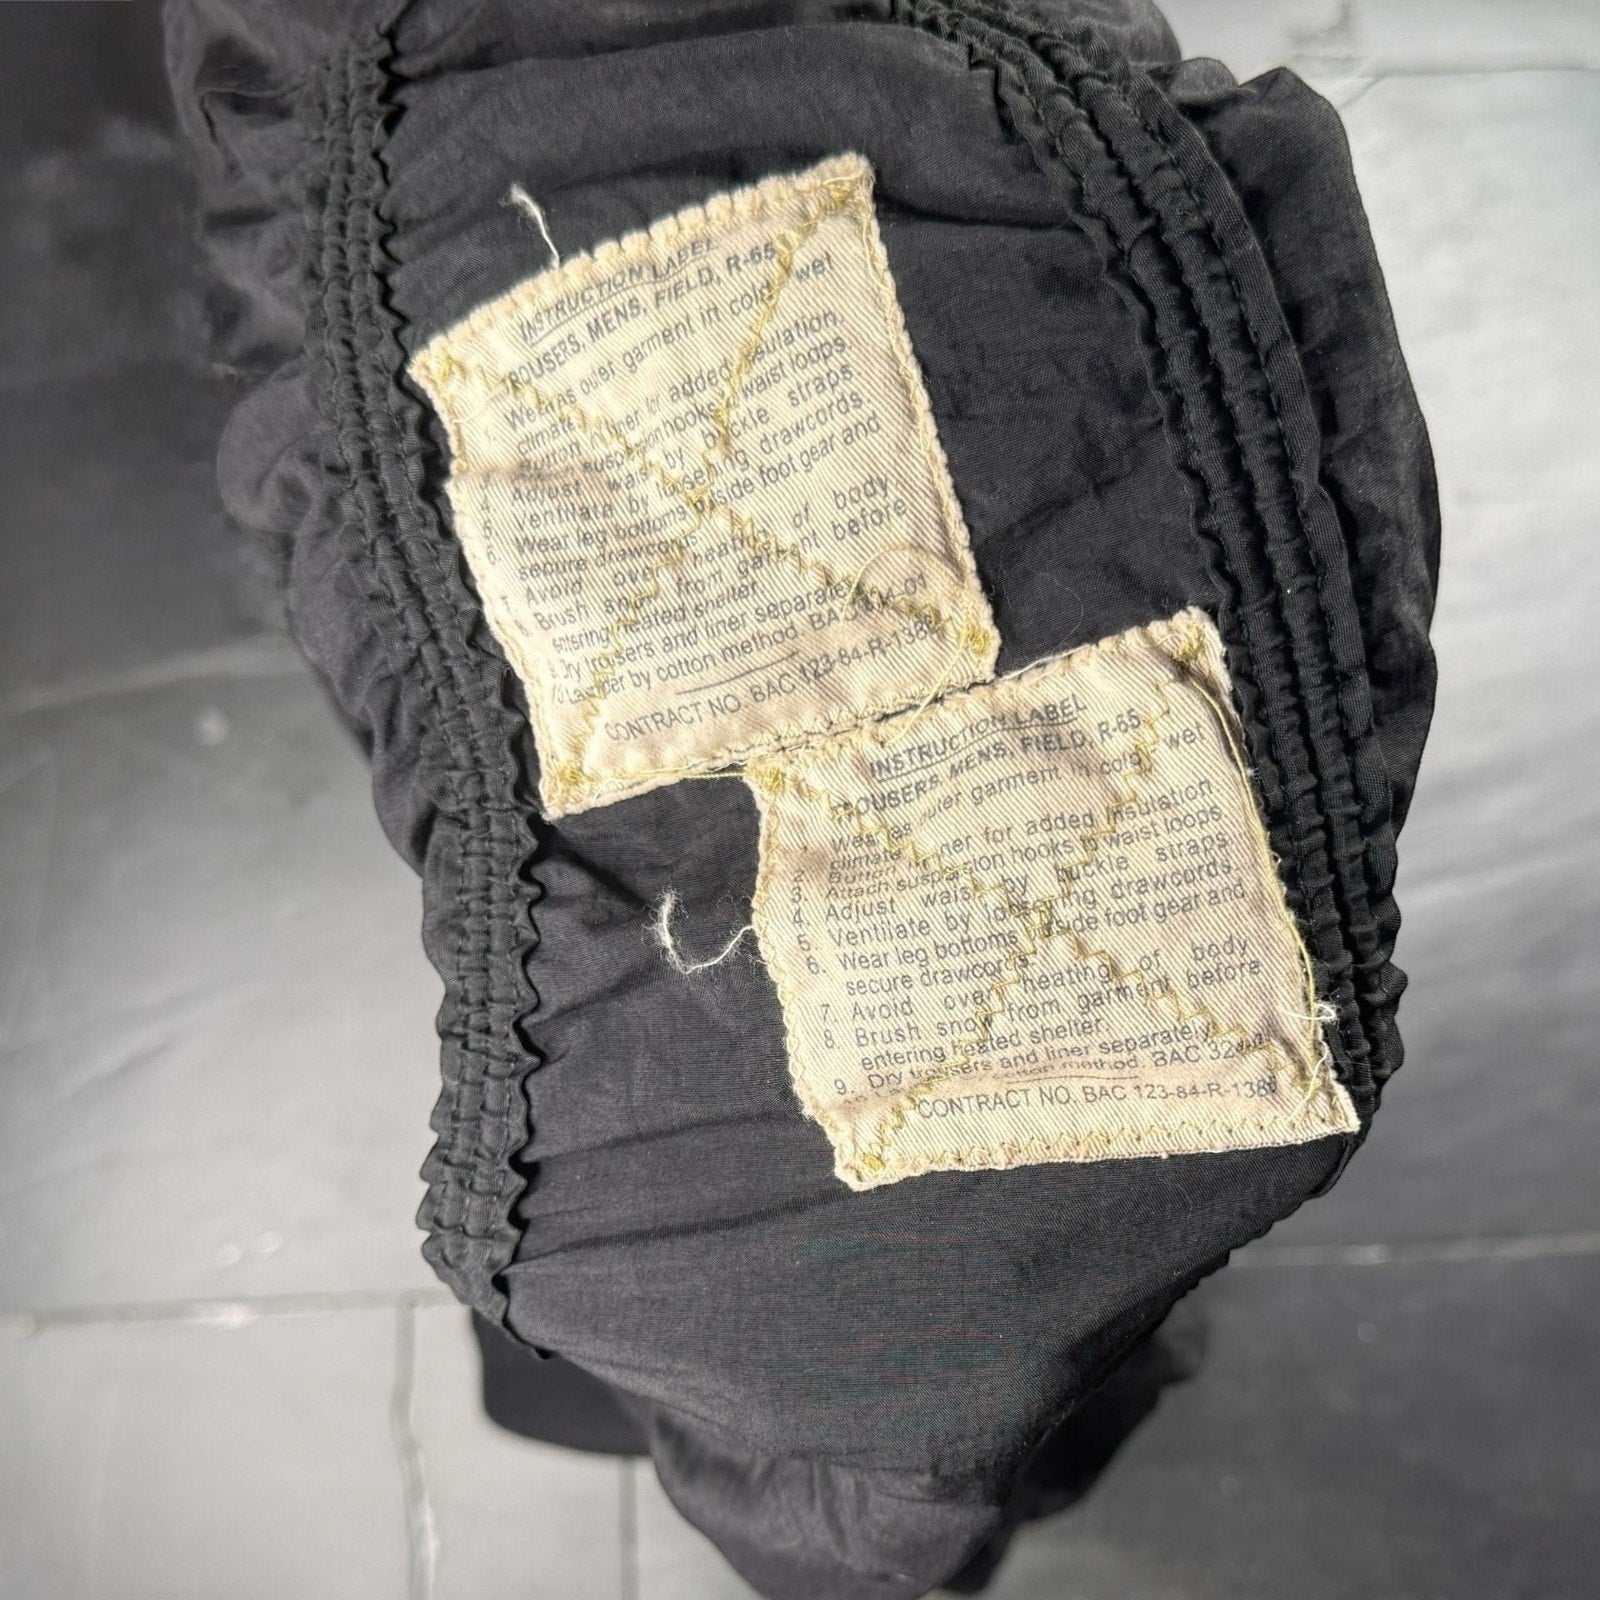 INSTRUCTION LABEL
TROUSERS, MENS, FIELD, R-65
1. Wear as outer garment in cold wet
climate
Button liner for added insulation.
suspension hooks to waist loops.
4. Adjust waist by buckle straps
5. Ventilate by loosening drawcords
6. Wear leg bottoms outside foot gear and
secure drawcords
7. Avoid over heating of body
8. Brush snow from garment before
entering heated shelter
9. Dry trousers and liner separately
10 Launder by cotton method. BAC
CONTRACT NO. BAC 123-84-R-1386
INSTRUCTION LABEL
TROUSERS, MENS, FIELD, R-65
Wear as outer garment in cold wet
climate
2. Button liner for added insulation
3. Attach suspension hooks to waist loops
4. Adjust waist by buckle straps
5. Ventilate by loosening drawcords
6. Wear leg bottoms outside foot gear and
secure drawcords
7. Avoid over heating of body
8 Brush snow from garment before
entering heated shelter.
9. Dry trousers and liner separately
cotton method. BAC
CONTRACT NO. BAC 123-84-R-1386